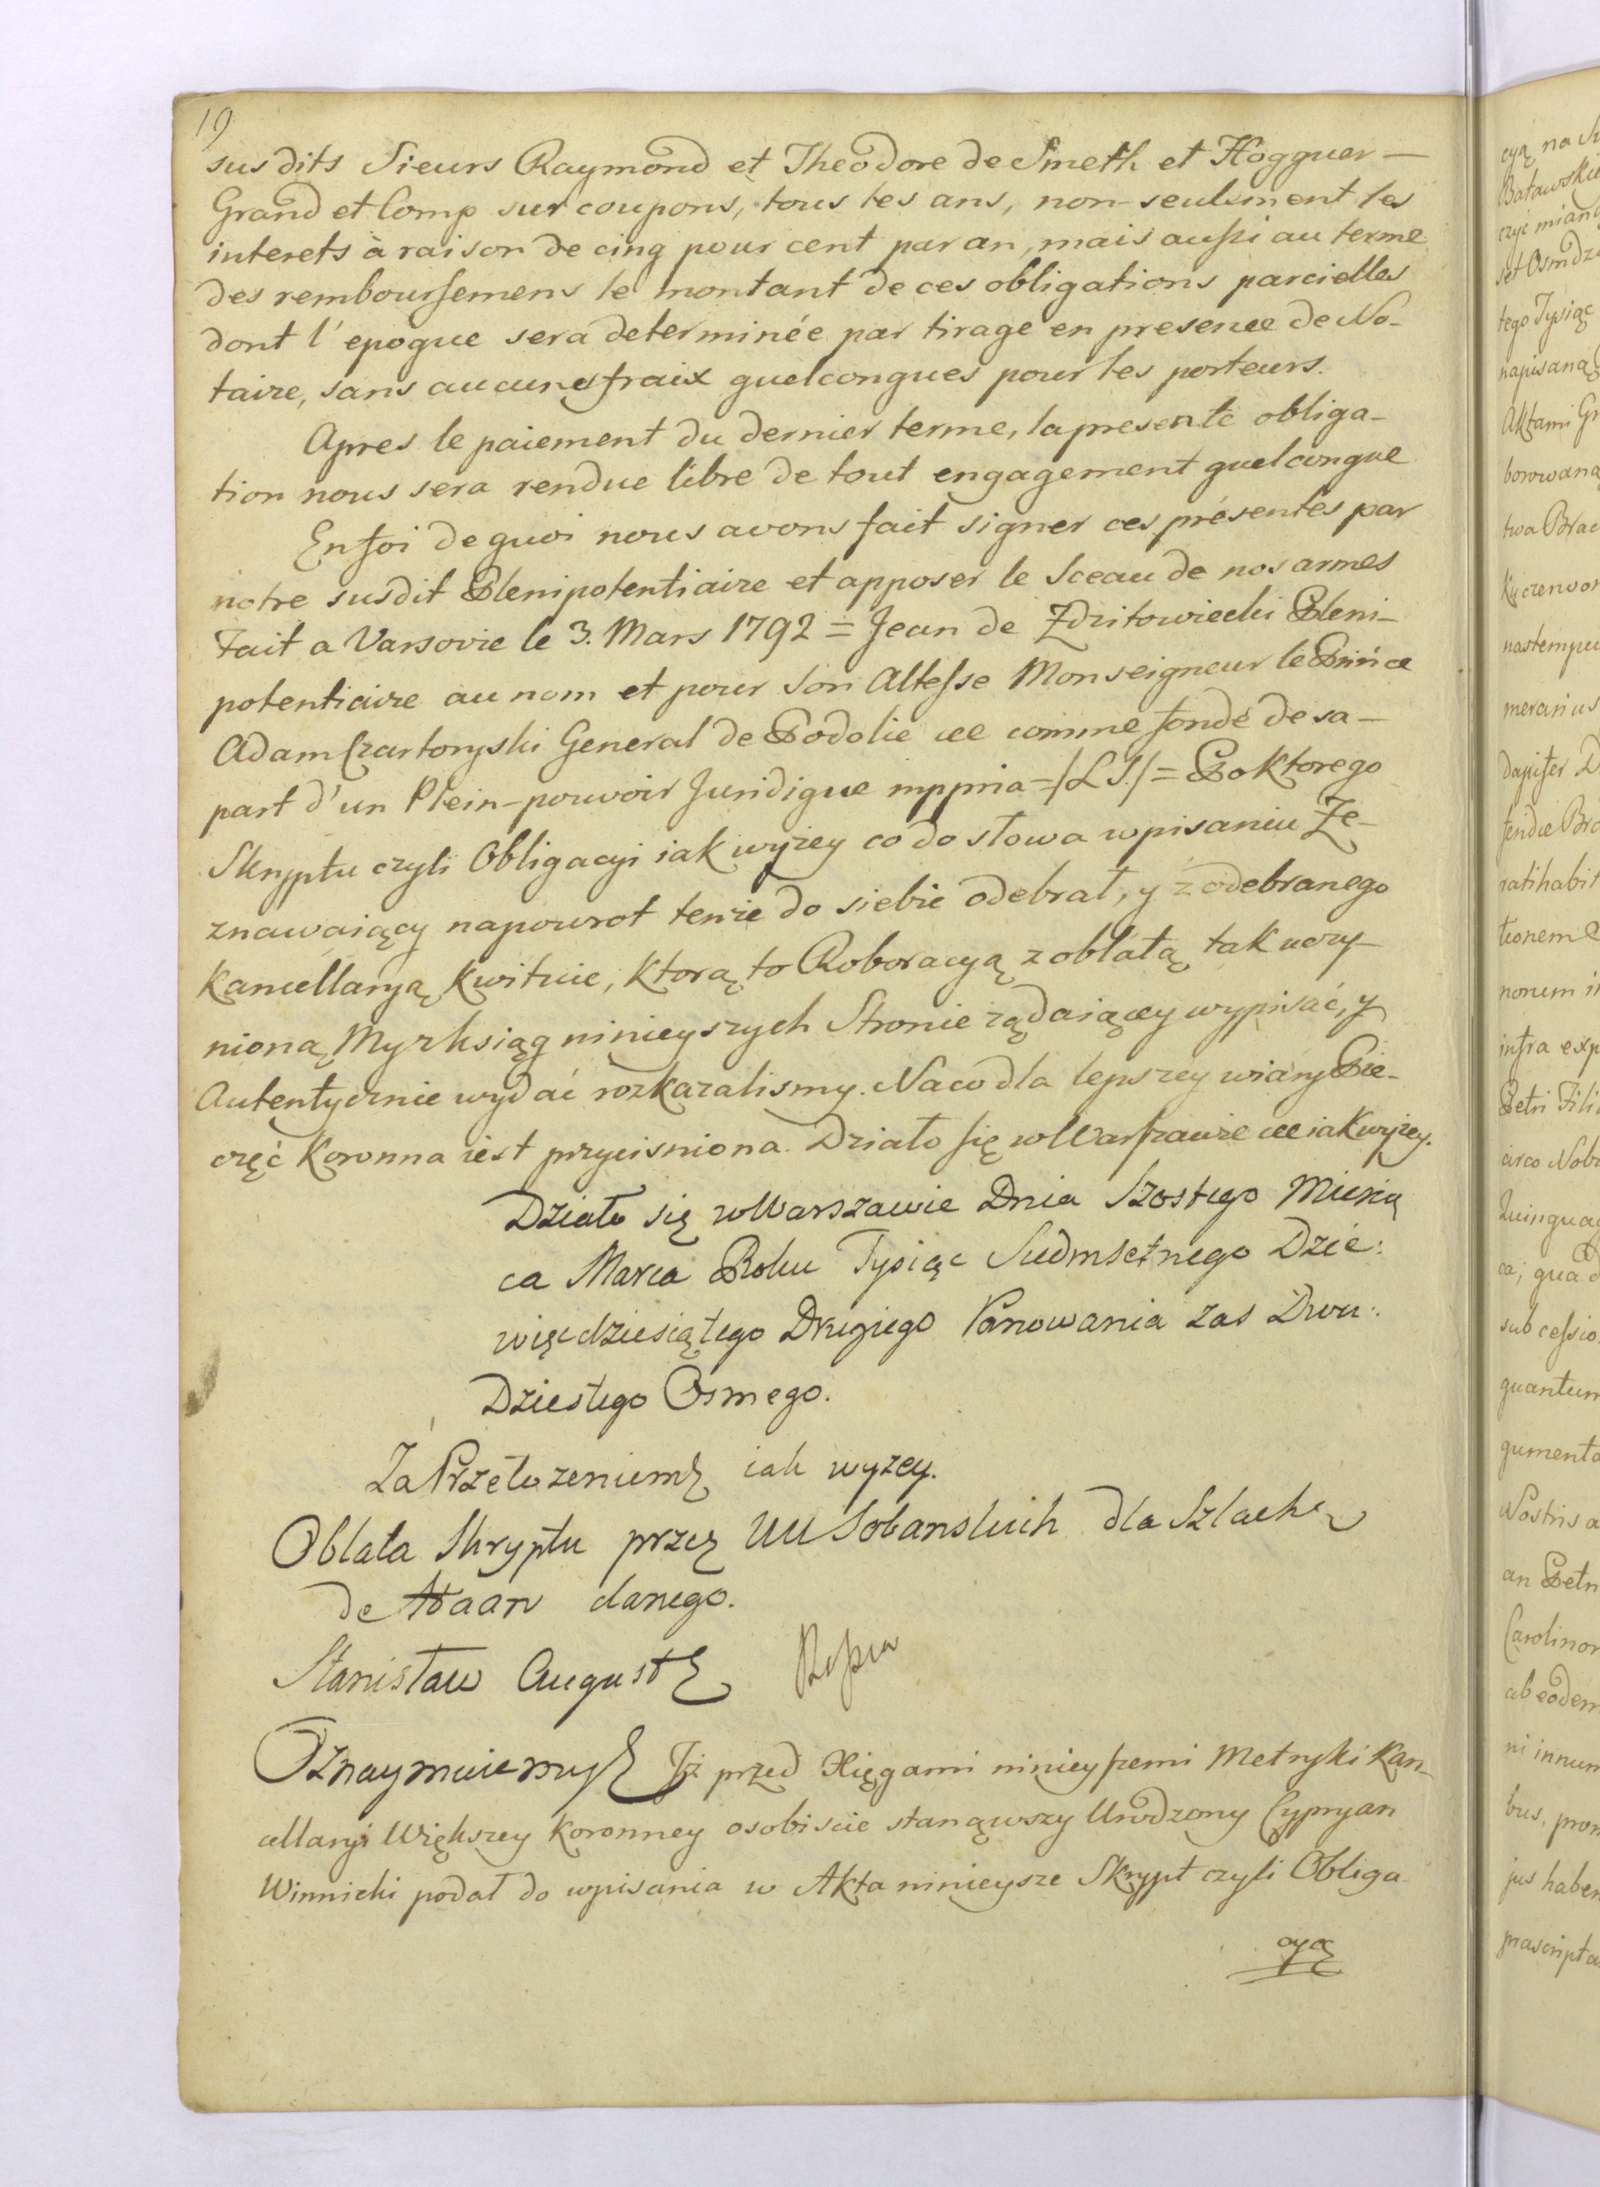 19
susdits Sieurs Raymond et Theodore de Smeth et Hogguer —
Grand et Comp sur coupons, tous les ans, non seulement les
interets à raison de cinq pour cent par an, mais aussi au terme
des remboursemens le montant de ces obligations parcielles
dont l'epoque sera determinée par tirage en presence de No-
taire, sans aucunes fraix quelconques pour les porteurs.
Apres le paiement du dernier terme, la presente obliga-
tion nous sera rendue libre de tout engagement quelconque
En foi de quoi nous avons fait signer ces présentes par
notre susdit Plenipotentiaire et apposer le Sceau de nos armes
Fait a Varsovie le 3. Mars 1792 = Jean de Zdzitowiecki Pleni-
potentiaire au nom et pour Son Altesse Monseigneur le Prince
Adam Czartoryski General de Podolie ee comme fondé de sa —
part d'un Plein-pouvoir Juridique mppria = /L S./ = Po Ktorego
Skryptu czyli Obligacyi iak wyżey co do słowa wpisaniu Ze-
znawaiący napowrot tenże do siebie odebrał, y z odebranego
Kancellaryą kwituie, Ktorą to Roboracyą z oblatą tak uczy-
nioną My z ksiąg ninieyszych Stronie żądaiącey wypisać, y
Autentycznie wydać rozkazalismy. Na co dla lepszey wiary Pie-
częć Koronna iest przycisniona. Działo się w Warszawie ee iak wyżey.
Działo się w Warszawie Dnia Szostego Miesią
ca Marca Roku Tysiąc Siedmsetnego Dzie:
więcdziesiątego Drugiego Panowania zas Dwu:
Dziestego Osmego.
Za Przełozeniem iak wyzey.
Oblata Skryptu przez UU Sobanskich dla Szlach:
de Haan danego.
Stanisław August
Oznaymuiemy Iż przed Xięgami ninieyszemi Metryki Kan-
cellaryi Większey Koronney osobiscie stanąwszy Urodzony Cypryan
Winnicki podał do wpisania w Akta ninieysze Skrypt czyli Obliga
cyą